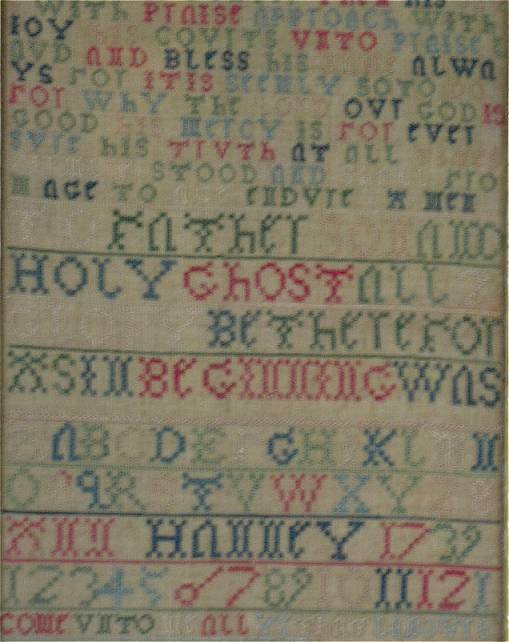 WITH PRAISE APPROACH WITH
IOY HIS COVRTS VNTO PRAISE
AND BLESS HIS ALWA
YS FOR IT IS SEEMLY SO TO
FOR WHY THE LORD OVR GOD IS
GOOD HIS MERCY IS FOR EVER
SVRE HIS TRVTH AT ALL
STOOD AND FRO
M AGE TO ENDVRE A MEN
FATHER SON AND
HOLY GHOST ALL
BE THEREFOR
AS IN BEGINNING WAS
A B C D E G H K L N
O P Q R T V W X Y
ANN HANNEY 1739
1 2 3 4 5 6 7 8 9 10 11 12 1
COME VNTO ALL